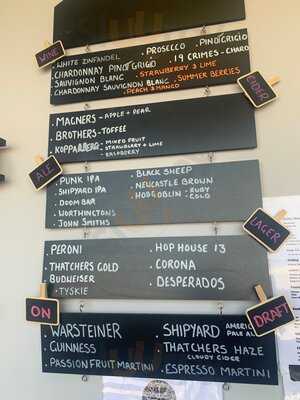 WINE
WHITE ZINFANDEL
PROSECCO
PINOT GRIGIO
CHARDONNAY PINOT GRIGIO
19 CRIMES - CHARD
SAUVIGNON BLANC
STRAWBERRY & LIME
SUMMER BERRIES
CHARDONNAY SAUVIGNON BLANC
PEACH & MANGO
CIDER
MAGNERS - APPLE + PEAR
BROTHERS - TOFFEE
KOPPARBERG - MIXED FRUIT
STRAWBERRY + LIME
RASPBERRY
ALE
PUNK IPA
BLACK SHEEP
SHIPYARD IPA
NEWCASTLE BROWN
DOOM BAR
HOBGOBLIN - RUBY
GOLD
WORTHINGTONS
JOHN SMITHS
LAGER
PERONI
HOP HOUSE 13
THATCHERS GOLD
CORONA
BUDWEISER
DESPERADOS
TYSKIE
ON
DRAFT
WARSTEINER
SHIPYARD AMERIC
PALE A
GUINNESS
THATCHERS HAZE
CLOUDY CIDER
PASSIONFRUIT MARTINI
ESPRESSO MARTINI